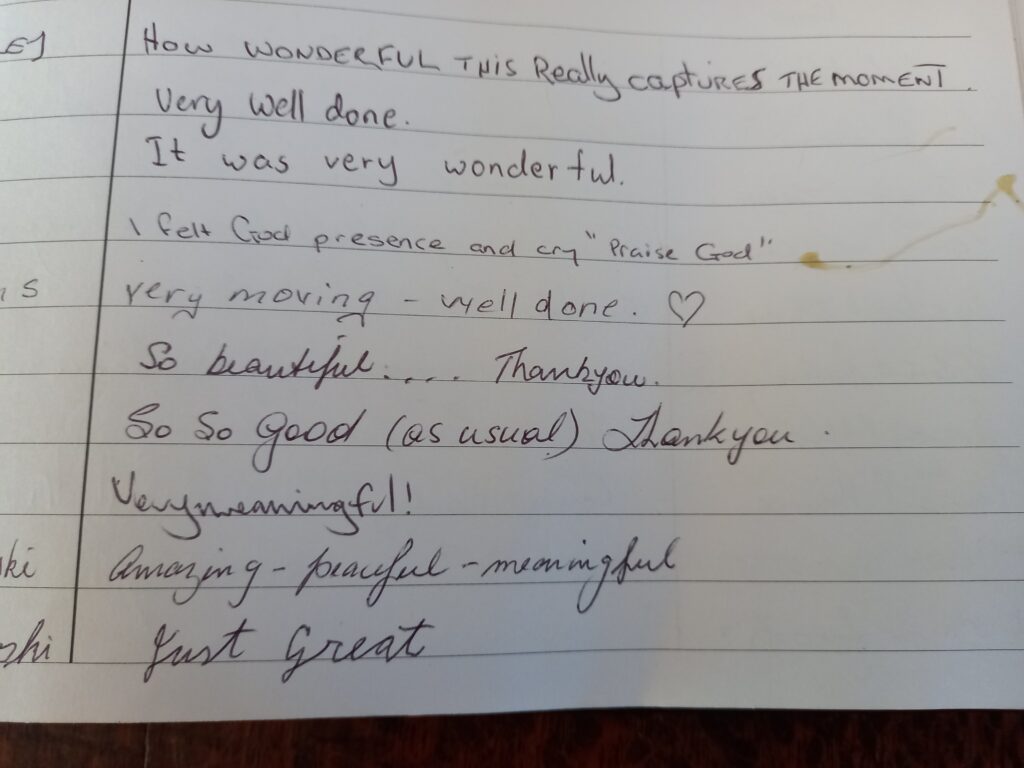 HOW WONDERFUL THIS Really captURES THE MOMENT.
Very well done.
It was very wonderful.
I felt God presence and cry "Praise God"
very moving - well done. ♡
So beautiful.... Thankyou.
So So Good (as usual) Thankyou.
Very meaningful!
Amazing - peaceful - meaningful
Just Great